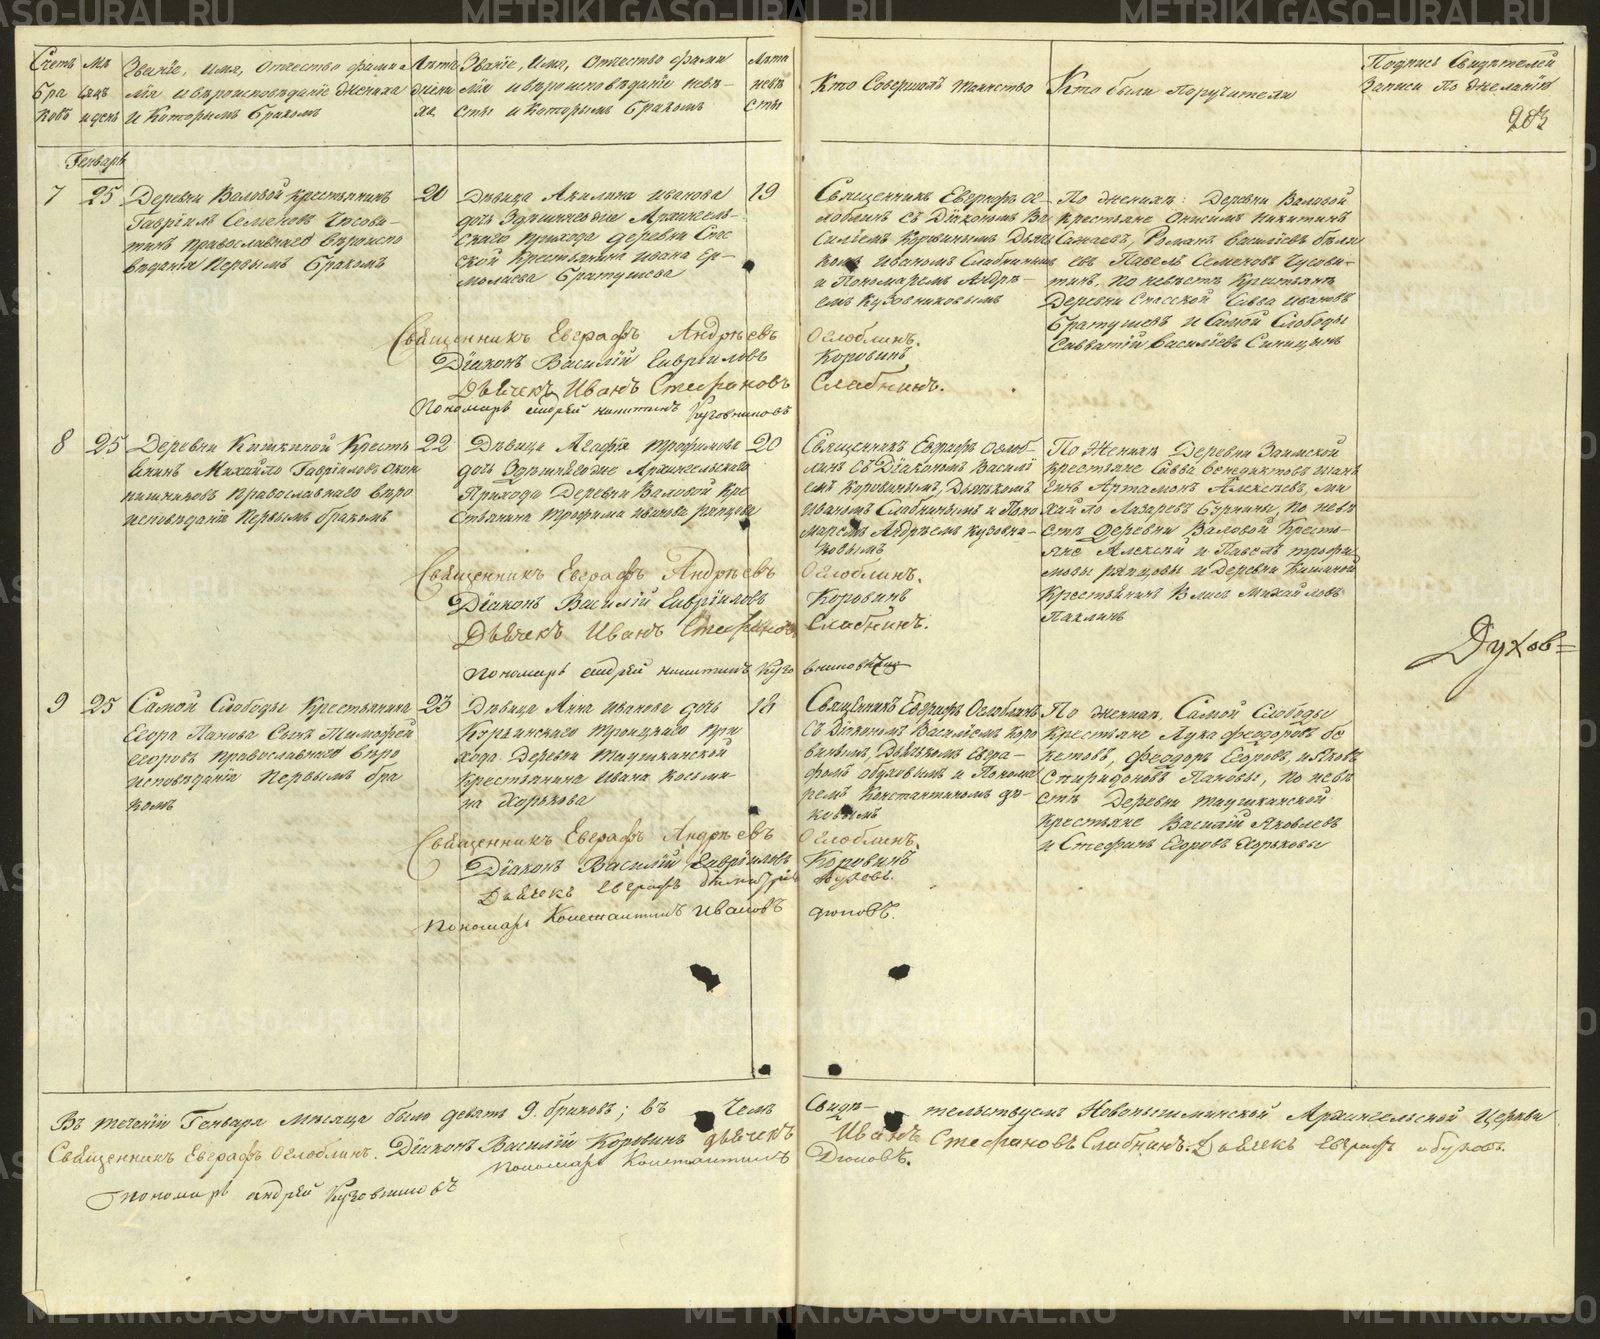 METRIKI.GASO-URAL.RU
Счетъ браковъ
Мѣсяцъ и день
Званіе, имя, отчество фамилія и вѣроисповѣданіе жениха и которымъ бракомъ
Лѣта жениха
Званіе, имя, отчество фамилія и вѣроисповѣданіе невѣсты и которымъ бракомъ
Лѣта невѣсты
Кто Совершалъ таинство
Кто были поручители
Подпись Свидѣтелей записи по желанію
203
Генварь
7
25
Деревни Валовой крестьянинъ
Гавріилъ Семеновъ Чусови-
тинъ православнаго вѣроиспо
вѣданія первымъ бракомъ
20
Дѣвица Акилина иванова
дочь Здѣшнеяже Архангель-
скаго прихода деревни Спас
ской крестьянина ивана Ер-
молаева Братушева
19
Священникъ Евграфъ Ог-
лоблинъ съ Діакономъ Ва
силіемъ Коровинымъ Дьяч
комъ Иваномъ Слабнинымъ
и Пономаремъ Андрѣ-
емъ Кузовниковымъ
По женихѣ: Деревни Валовой
крестьяне Онисимъ никитинъ
Романъ василіевъ
евъ Павелъ Семеновъ Чусови-
тинъ, по невѣстѣ крестьянѣ
Деревни Спасской Савва ивановъ
Братушевъ и Самой Слободы
Савватій василіевъ Синицынъ
Священникъ Евграфъ Андрѣевъ Оглоблинъ.
Діаконъ Василій Гавріиловъ Коровинъ
Дьячекъ Иванъ Стефановъ Слабнинъ.
Пономарь андрей никитинъ Кузовниковъ
8
25
Деревни Кашкиной Кресть
янинъ Михайло Гавріиловъ Окон
нишниковъ православнаго вѣро
исповѣданія первымъ бракомъ
22
Дѣвица Агафія трофимова
дочь Здѣшнегоже Архангельскаго
Прихода Деревни Валовой Кре
стьянина трофима иванова
20
Священникъ Евграфъ Оглоб-
линъ съ Діакономъ Василі
емъ Коровинымъ, Дьячкомъ
Иваномъ Слабнинымъ и Поно
маремъ Андрѣемъ кузовни-
ковымъ
По Женихѣ Деревни Заимской
крестьяне Савва бенедиктовъ
Артамонъ Алексѣевъ, ми
хайло Лазаревъ по невѣ
стѣ Деревни Валовой Кресть-
яне Алексѣй и Павелъ трофи
мовы и Деревни
Крестьянинъ Власъ Михайловъ
Паклинъ
Священникъ Евграфъ Андрѣевъ Оглоблинъ.
Діаконъ Василій Гавріиловъ Коровинъ
Дьячекъ Иванъ Стефановъ Слабнинъ.
Пономарь андрей никитинъ Кузовниковъ
Духов=
9
25
Самой Слободы Крестьянина
Егора Панова Сынъ Тимофей
егоровъ православнаго вѣро
исповѣданія первымъ бра
комъ
23
Дѣвица Анна иванова дочь
троицкаго при
хода Деревни Таушканской
крестьянина ивана косьми-
на Хорькова
18
Священникъ Евграфъ Оглоблинъ
съ Діакономъ Василіемъ Коро
винымъ, Дьячкомъ Евгра-
фомъ обуховымъ и Понома
ремъ Константиномъ дю-
ковымъ
По женихѣ, Самой Слободы
Крестьяне Лука феодоровъ бе
кетовъ, феодоръ Егоровъ, и Яковъ
Спиридоновъ Пановы, по невѣ
стѣ Деревни таушканской
крестьяне Василій Яковлевъ
и Стефанъ Егоровъ Хорьковы
Священникъ Евграфъ Андрѣевъ Оглоблинъ.
Діаконъ Василій Гавріиловъ Коровинъ
Дьячекъ Евграфъ Обуховъ.
Пономарь Константинъ Ивановъ
Въ теченіи Генваря мѣсяца было девять 9. браковъ; въ чемъ Свидѣ-тельствуемъ Новопышминской Архангельской Церкви
Священникъ Евграфъ Оглоблинъ. Діаконъ Василій Коровинъ дьячекъ Иванъ Стефановъ Слабнинъ. Дьячекъ Евграфъ обуховъ.
Пономарь Константинъ
Пономарь андрей Кузовниковъ